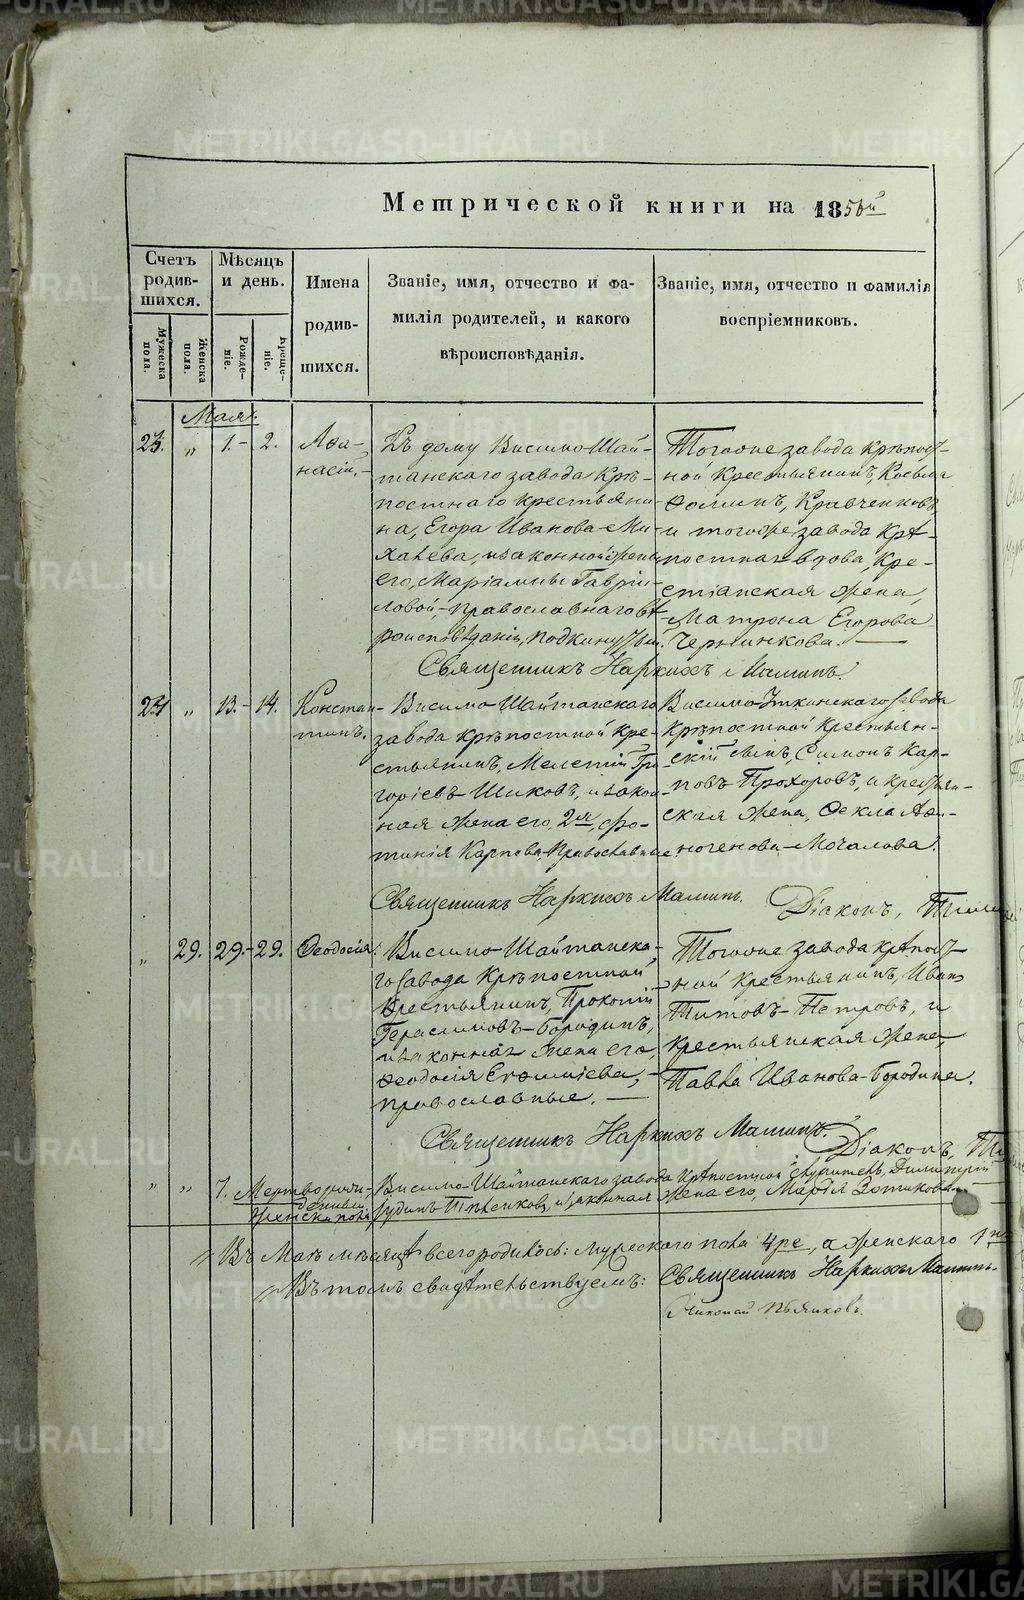 METRIKI.GASO-URAL.RU
Метрической книги на 185
Счетъ родив-шихся.
Мужеска пола.
Женска пола.
Мѣсяцъ и день.
Рожде-ніе.
Креще-ніе.
Имена родив-шихся.
Званіе, имя, отчество и фа-
милія родителей, и какого
вѣроисповѣданія.
Званіе, имя, отчество и фамилія
воспріемниковъ.
Мая.
„ 1.- 2.
Аѳа-
насій,-
Къ дому Висимо-Шай-
танскаго завода Крѣ-
постнаго крестьяни-
на, Егора Иванова Ми-
халева, и законной жены
его, Маріамны Гаврі-
ловой,-православнаго вѣ-
роисповѣданія, подкинутый.
Тогоже завода крѣпост-
ной Крестьянинъ, Косьма
Ѳоминъ, Кравченковъ
и тогоже завода крѣ-
постная вдова, Кре-
стіанская жена,
Матрона Егорова
Чернинкова.
Священникъ Наркисъ Маминъ.
24 „ 13.- 14.
Констан-
тинъ.
Висимо-Шайтанскаго
завода крѣпостной кре-
стьянинъ, Мелетій Гри-
горіевъ Шиковъ, и закон-
ная жена его, 2я, Фо-
тинія Карпова, Православные.
Висимо-Уткинскаго завода
Крѣпостной Крестьян-
скій сынъ, Симонъ Кар-
повъ Прохоровъ, и крестьян-
ская жена, Ѳекла Аѳи-
ногенова-Мочалова.
Священникъ Наркисъ Маминъ.
Діаконъ,
„ 29. 29.- 29.
Ѳеодосія.
Висимо-Шайтанска-
го завода Крѣпостной
Крестьянинъ, Прокопій
Герасимовъ-Бородинъ,
и законная жена его,
Ѳеодосія Евѳиміева,
православные.
Тогоже завода крѣпост-
ной крестьянинъ, Иванъ
Титовъ-Петровъ, и
крестьянская жена,
Павла Иванова-Бородина.
Священникъ Наркисъ Маминъ.
Діаконъ,
„ „ 7.
Мертворож-
денный
Женска пола
Висимо-Шайтанскаго завода Крѣпостной служитель, Димитрій
и законная жена его, Марія Зотикова.
Въ Маѣ мѣсяцѣ всего родилось: мужескаго пола 4ре, а женскаго
Въ томъ свидѣтельствуемъ: Священникъ Наркисъ Маминъ.